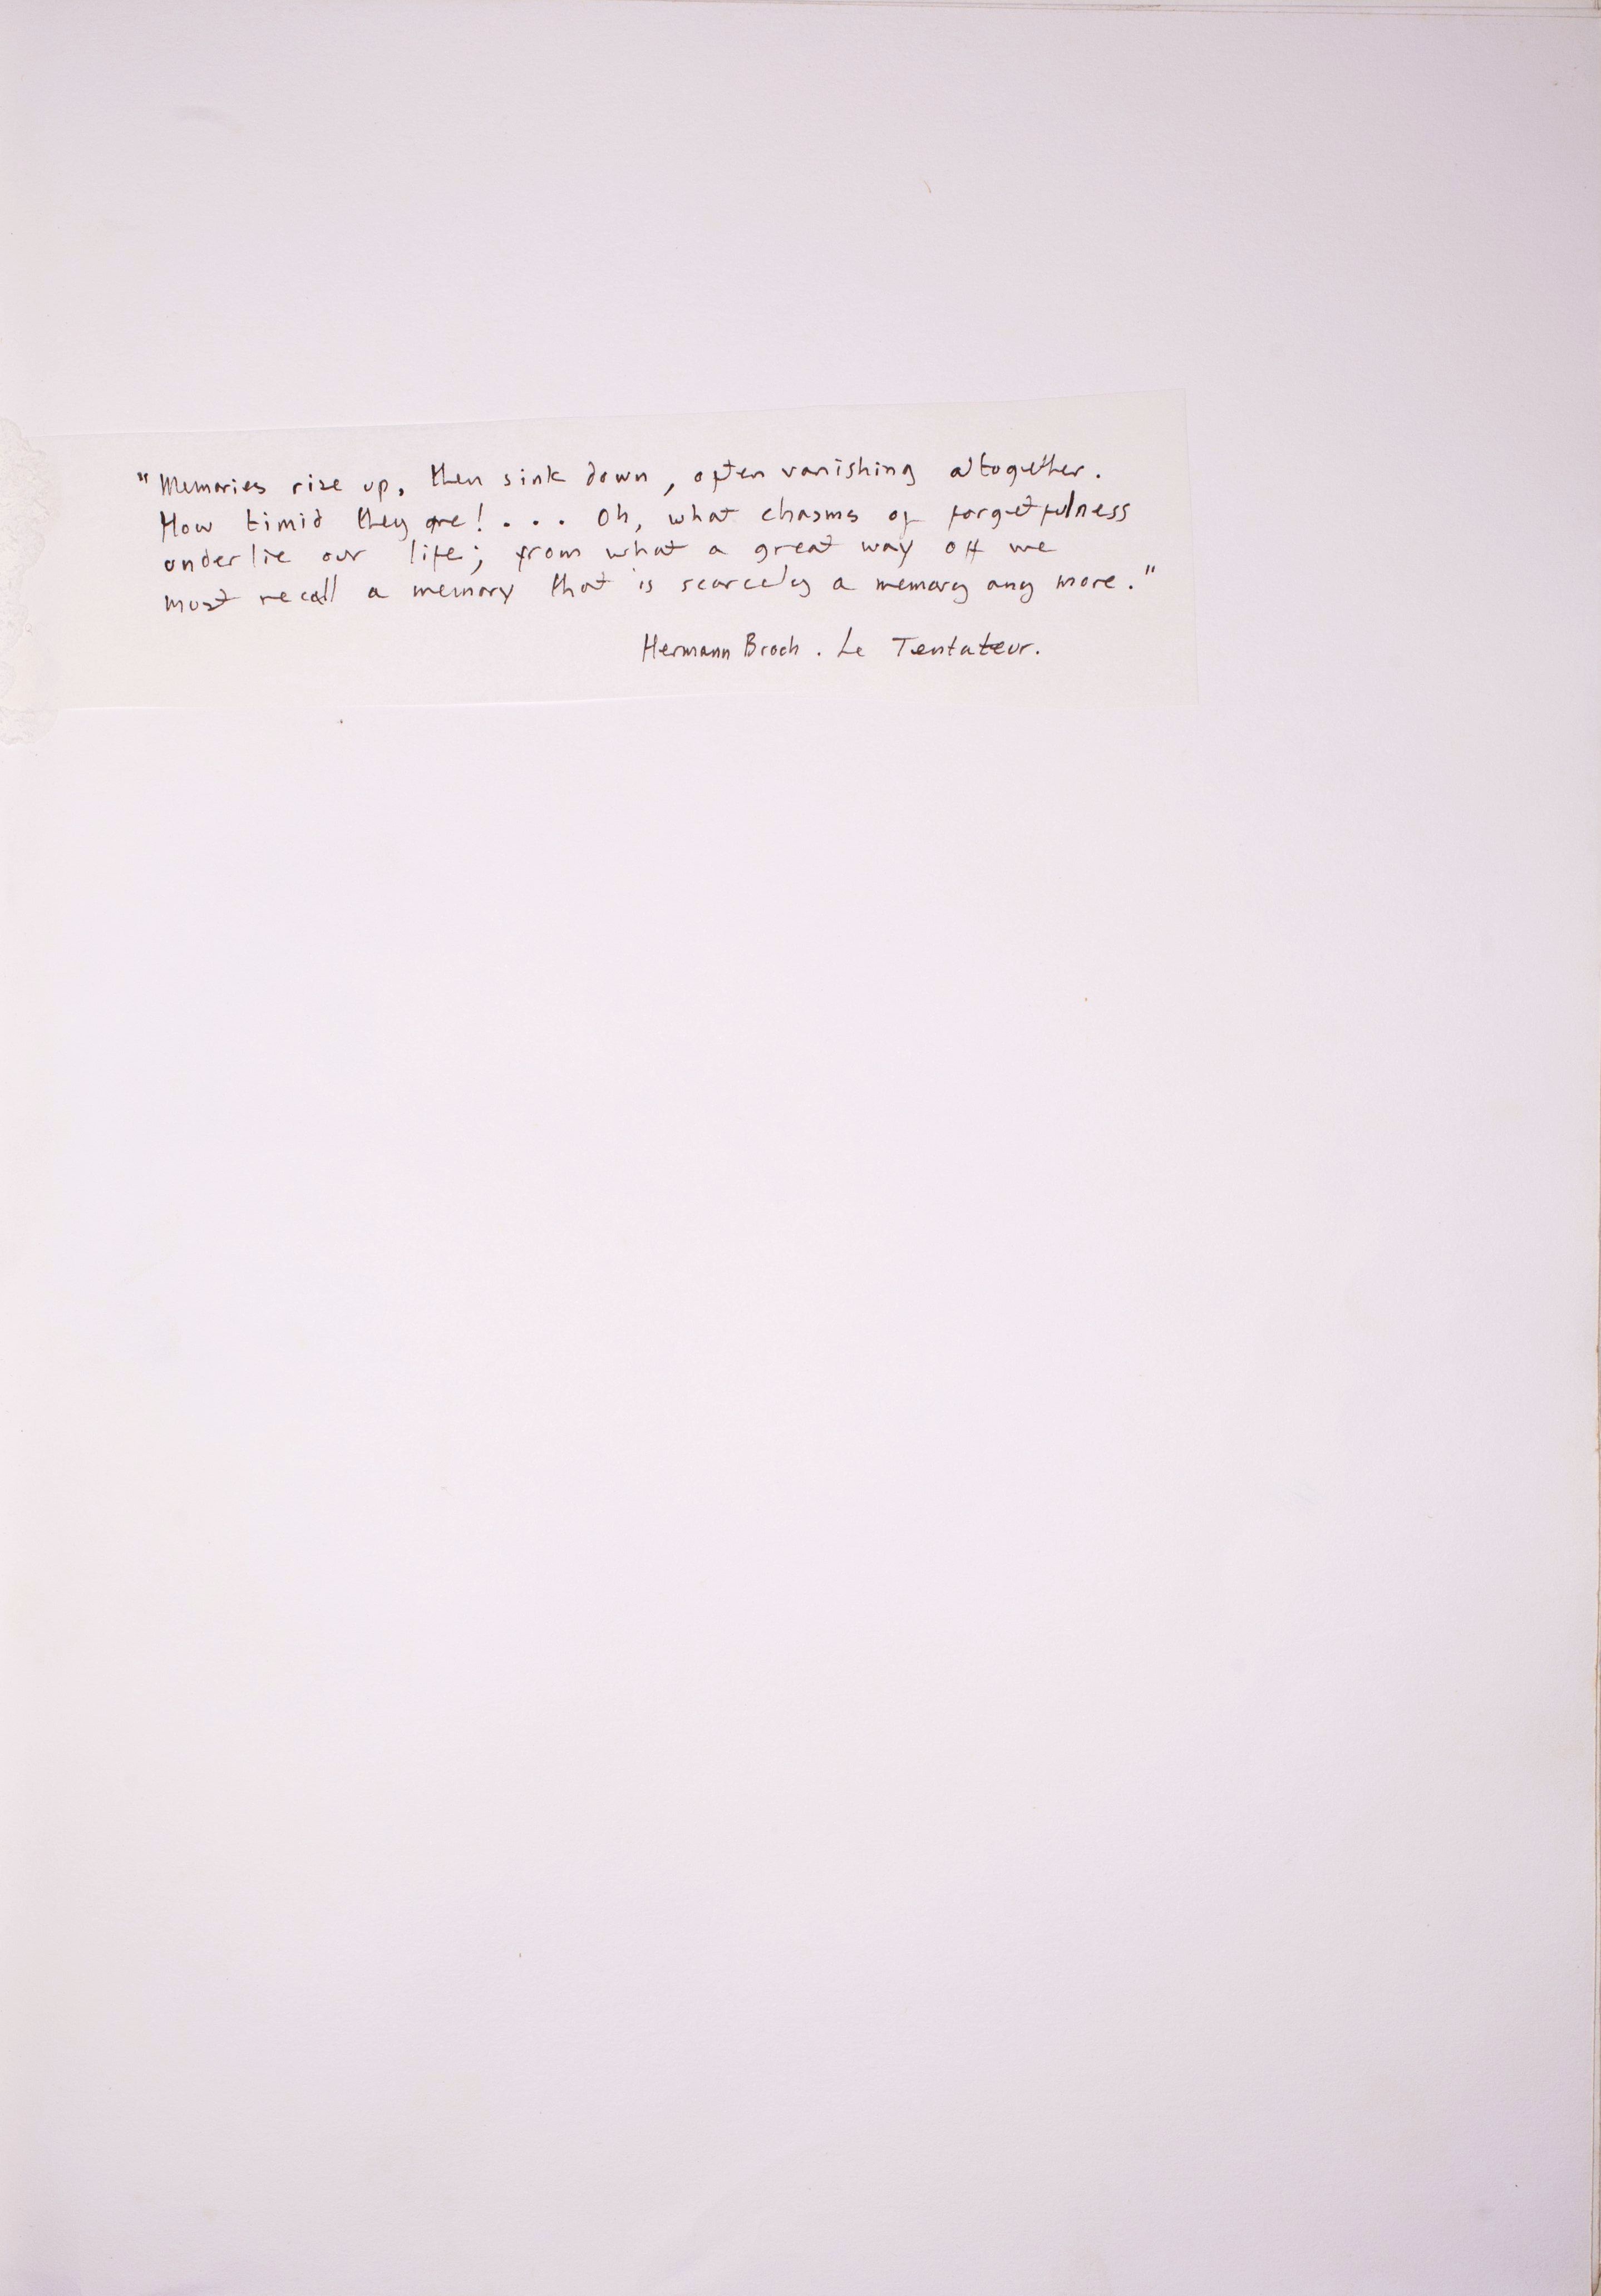 "Memories rise up, then sink down, often vanishing altogether.
How timid they are! . . . Oh, what chasms of forgetfulness
underlie our life; from what a great way off we
must recall a memory that is scarcely a memory any more."
Hermann Broch. Le Tentateur.